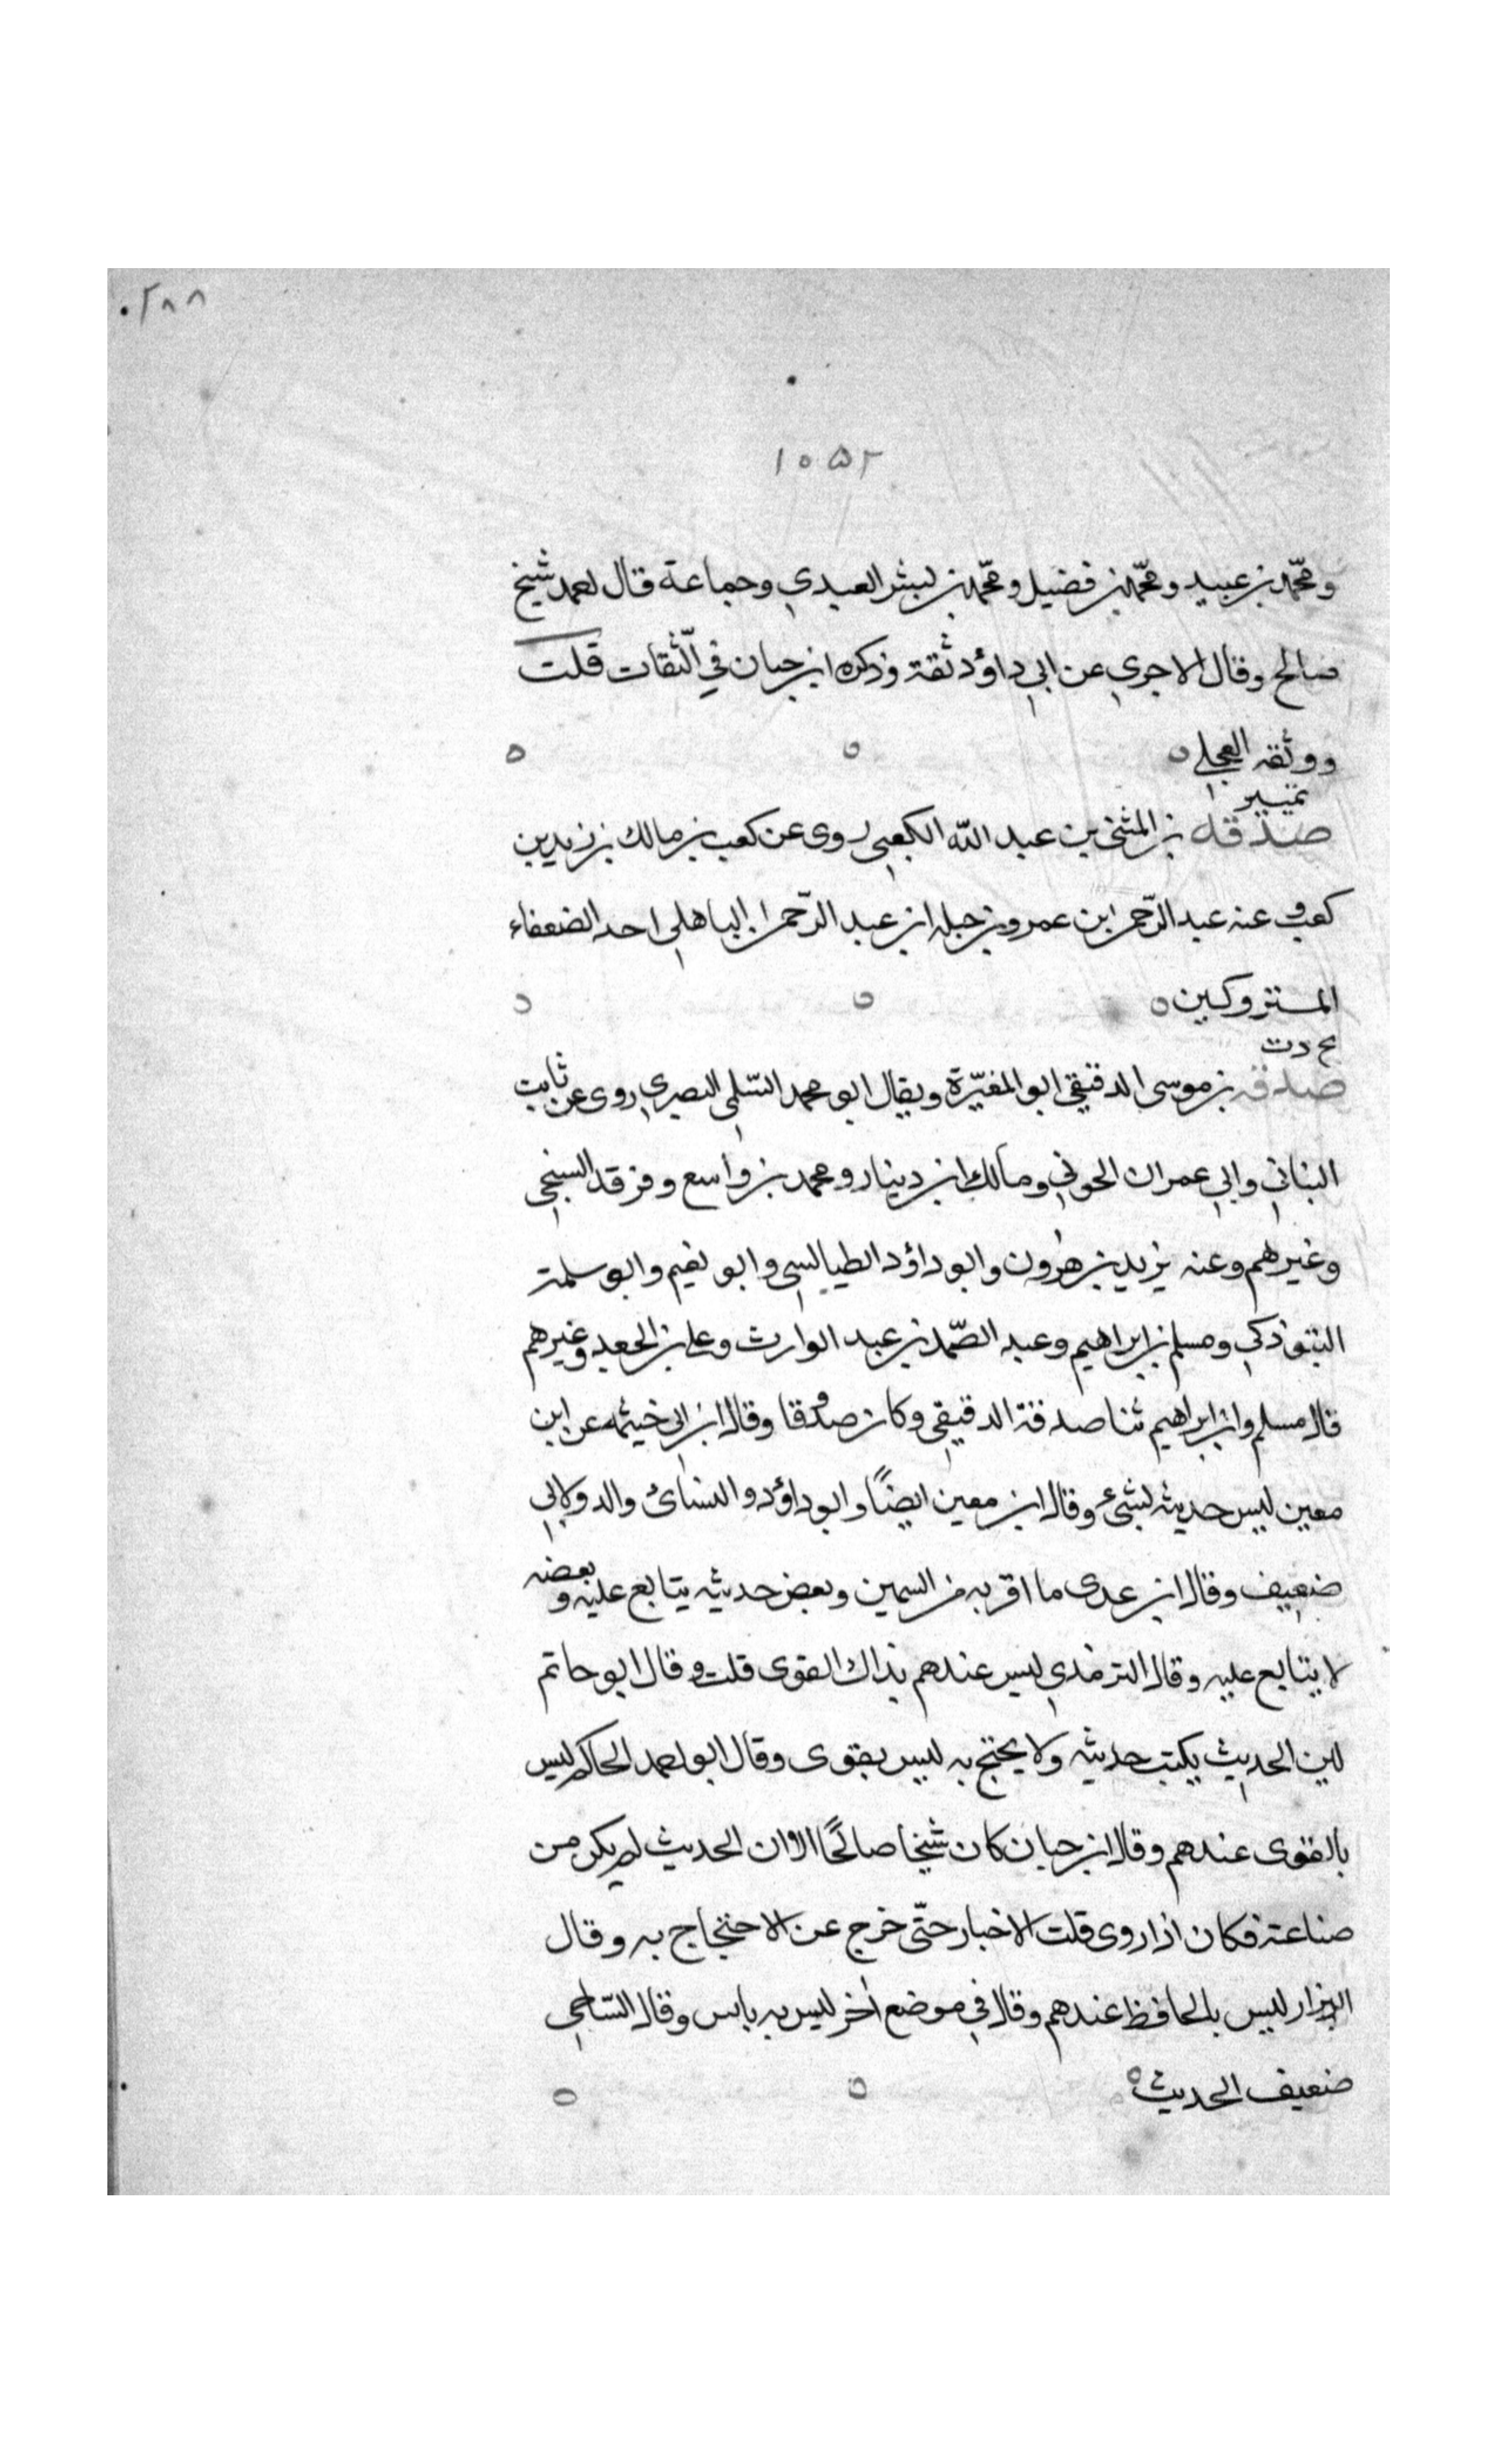 ۰۲۸۸
۱۰۵۲
ومحمد بن عبيد ومحمد بن فضيل ومحمد بن بشر العبدي وجماعة قال احمد شيخ
صالح وقال الاجري عن ابي داؤد ثقة وذكره ابن حبان في الثقات قلت
ووثقه العجلي ه ه ه
تمييز
صدقه بن المثنى بن عبد الله الكعبي روى عن كعب بن مالك بن زيد بن
كعب وعنه عبد الرحمن ابن عمرو بن جبله ابن عبد الرحمن الباهلي احد الضعفاء
المتروكين ه ه ه
بخ د ت
صدقه بن موسى الدقيقي ابو المغيرة ويقال ابو محمد السّلمي البصري روى عن ثابت
البناني وابي عمران الجوني ومالك ابن دينار ومحمد بن واسع وفرقد السبخي
وغيرهم وعنه يزيد بن هرون وابو داؤد الطيالسي وابو نعيم وابو سلمة
التبوذكي ومسلم بن ابراهيم وعبد الصّمد بن عبد الوارث وعلي بن الجعد وغيرهم
قال مسلم وابن ابراهيم ثنا صدقة الدقيقي وكان صدوقا وقال ابن ابي خيثمه عن ابن
معين ليس حديثه بشيء وقال ابن معين ايضًا وابو داؤد والنسائ والدولابي
ضعيف وقال ابن عدى ما اقربه من السمين وبعض حديثه يتابع عليه وبعضه
لا يتابع عليه وقال الترمذي ليس عندهم بذاك القوى قلت وقال ابو حاتم
لين الحديث يكتب حديثه ولا يحتج به ليس بقوى وقال ابو احمد الحاكم ليس
بالقوى عندهم وقال ابن حبان كان شيخا صالحًا الا ان الحديث لم يكن من
صناعته فكان اذا روى قلت الاخبار حتّى خرج عن الاحتجاج به وقال
البزار ليس بالحافظ عندهم وقال في موضع اخر ليس به باس وقال السّاجي
ضعيف الحديث ه ه ه